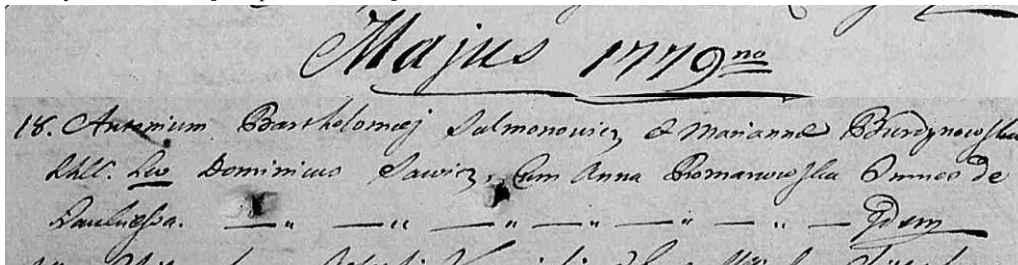 Majus 1779no
18. Antonium Bartholomej Salmonowicz & Marianna Burdynowska
LLCC. Lev. Dominicus Sawicz, Cum Anna Romanowska Omnes de
— " — " — " — " — " — " — Idem